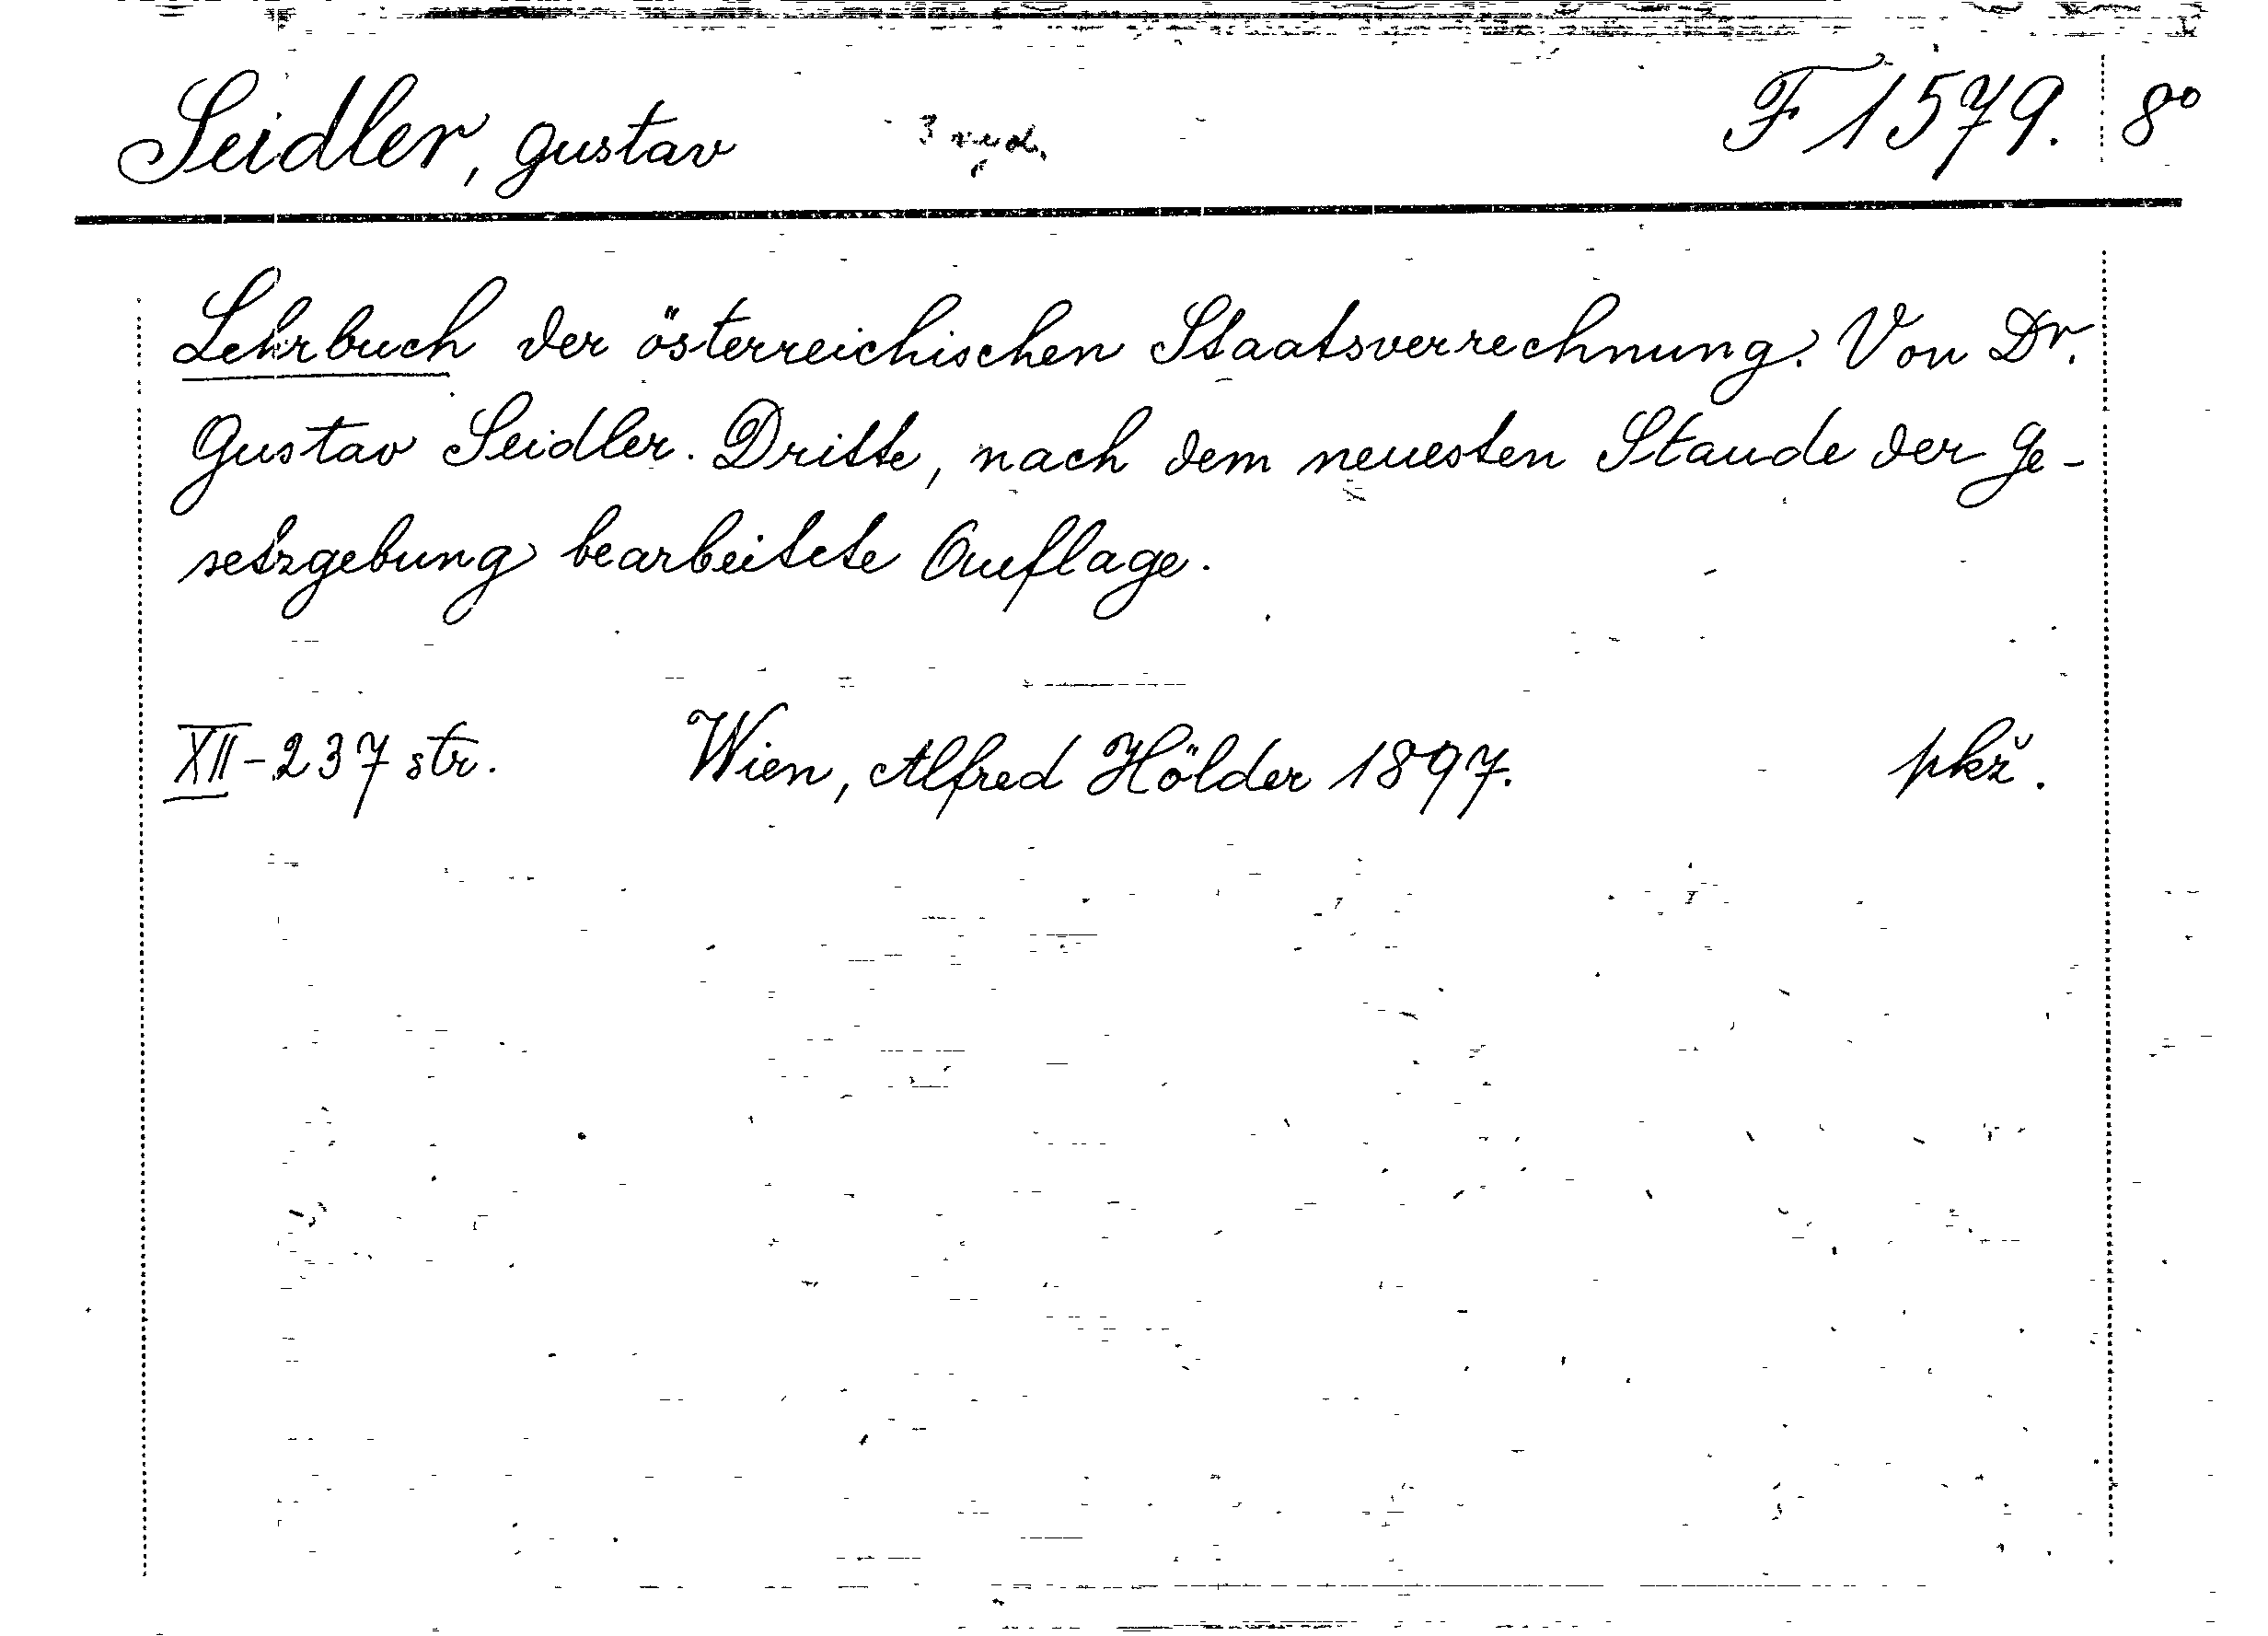 Seidler, Gustav 3 vyd. F 1579. 8°
Lehrbuch der österreichischen Staatsverrechnung. Von Dr.
Gustav Seidler. Dritte, nach dem neuesten Stande der Ge-
setzgebung bearbeitete Auflage.
XII-237 str. Wien, Alfred Hölder 1897. pkž.